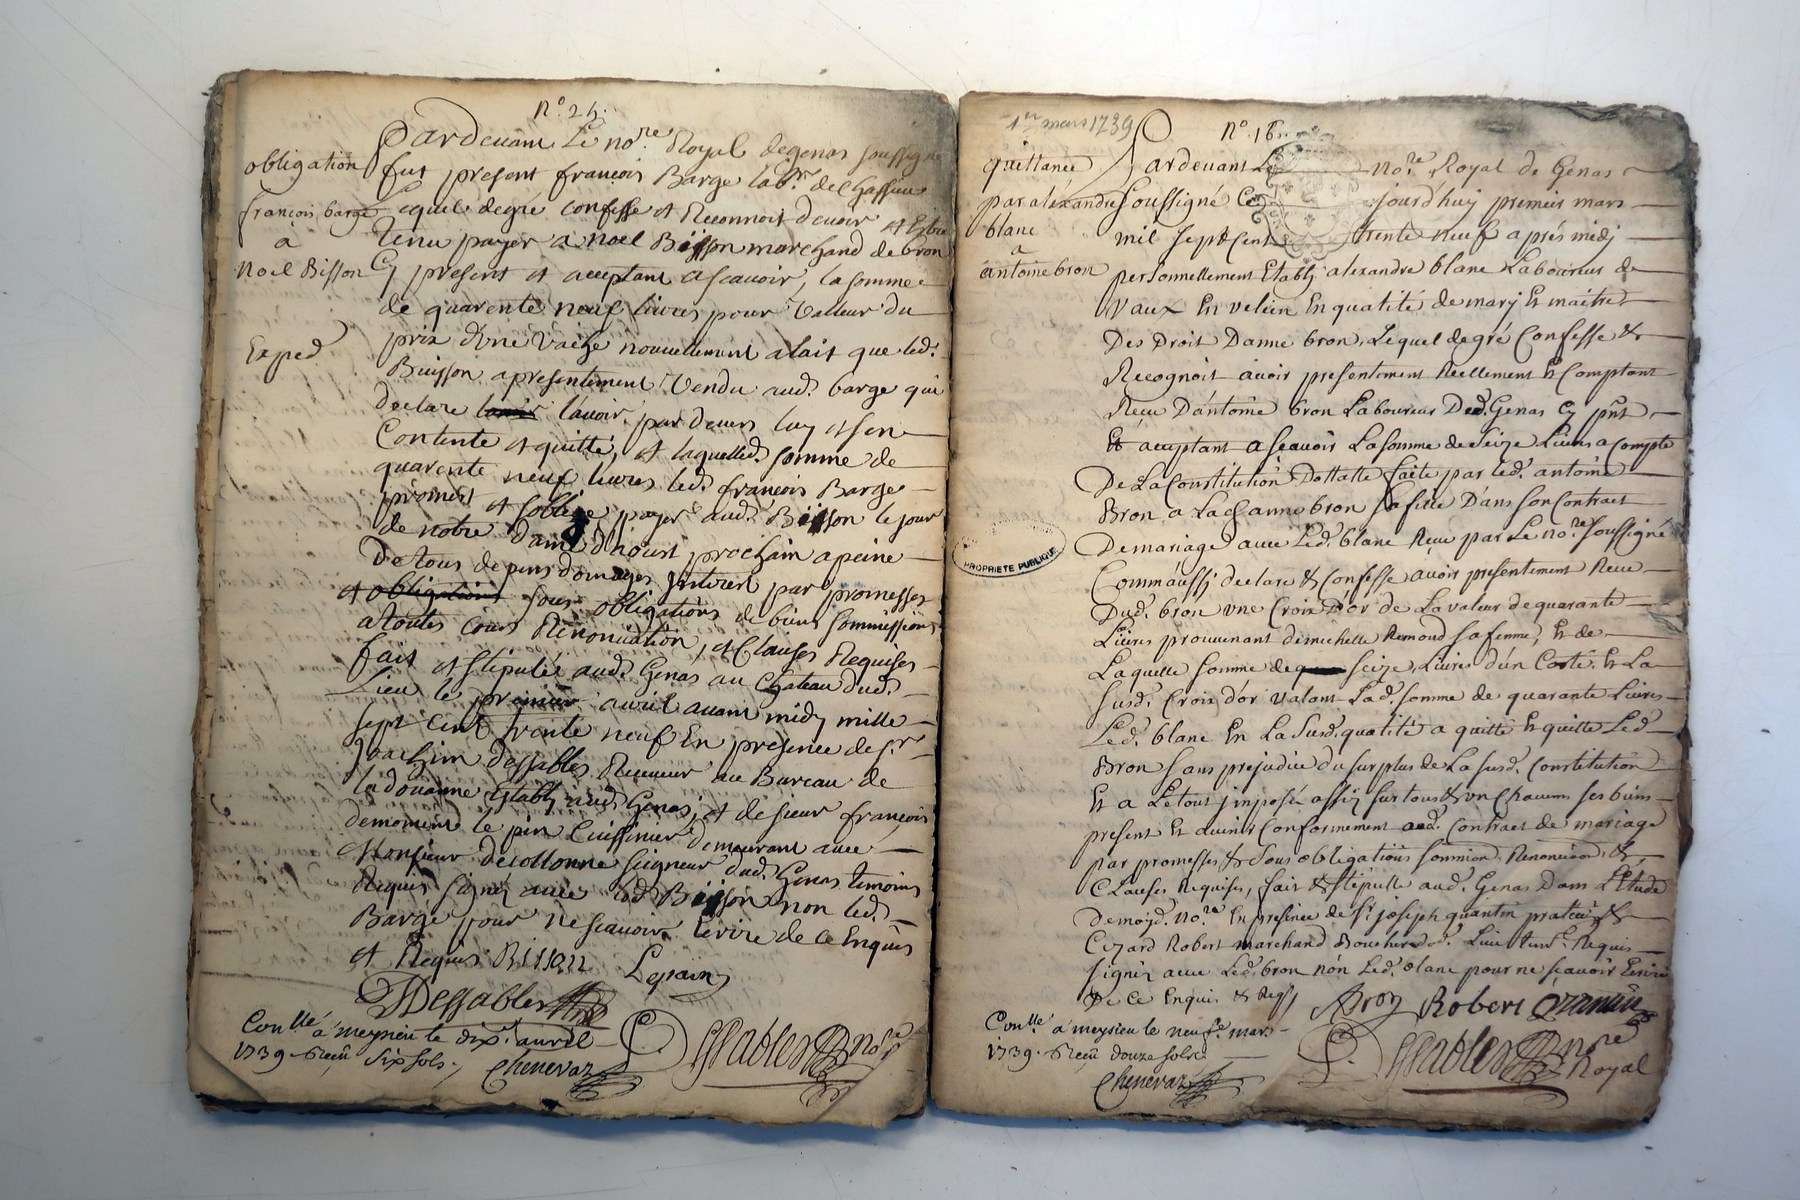 N° 24.
obligation
françois barge
à
Noel Bisson
Exped
Pardevant Le no.re Royal de genas soussigné
fut present françois Barge lab.r de Chassieu
Lequel de gré confesse et Reconnoit devoir et Estre
tenu payer a noel Bisson marchand de bron
Cy present et acceptant ascavoir, la somme
de quarente neuf livres pour Valleur du
prix d'une Vache nouvellement a lait que led.
Buisson apresentement Vendu aud. barge qui
declare l'avoir pardevers luy et s'en
Contente et quitte, et laquelle d. somme de
quarente neuf livres led. françois Barge
promet et s'oblige payer aud. Bisson le jour
de notre dame d'houst prochain a peine
De tous depens domages interest par promesses
et obligations sous obligations de biens sommissions
a toutes cours Renonciation, et Clauses Requises
fait et stipulé aud. Genas au Chateau dud.
Lieu le premier avril avant midy mille
sept cent trente neuf En presence de s.r
Joachim Dessables Receveur au Bureau de
la douanne Etably aud. Genas, et de sieur françois
le pin Cuissinier demeurant avec
Monsieur de seigneur dud. Genas temoins
Requis signéz avec led. Bisson non led.
Barge pour ne scavoir Ecrire de ce Enquis
et Requis Bisson Lepain
Dessables
Con.llé à meysieu le dix.e avril
1739. Reçu Six sols. Chenevaz
Dessables no.re
1er mars 1739
N° 16.
quittance
par aléxandre
blanc
a
antoine bron
Pardevant Le no.re Royal de Genas
soussigné Ce jourd'huy premier mars
mil sept cent trente neuf aprés midy
personnellement Etably alexandre blanc Laboureur de
Vaux En velein En qualité de mary Et maitre
Des Droit Danne bron, Lequel de gré Confesse &
Recognoit avoir presentement Reellement Et Comptant
Reçu D'antoine bron Laboureur Dud. Genas Cy pnt
Et acceptant ascavoir La somme de seize Livres a Compte
De La Constitution Dottalle faite par led. antoine
Bron a Lad. anne bron sa fille Dans son Contract
De mariage avec Led. blanc Reçu par Le no.re soussigné
Comm'aussy declare & Confesse avoir presentement Receu
Dud. bron une Croix D'or de La valeur de quarante
Livres prouvenant de michelle Remond sa femme, Et de
Laquelle somme de seize Livres d'un Costé Et La
susd. Croix d'or valant Lad. somme de quarante Livres
Led. blanc En La susd. qualité a quitté Et quitte Led.
Bron sans prejudice du surplus de La susd. Constitution
Et a Letout imposé assis sur tous & un Chacuns ses biens
present Et avenir Conformement aud. Contract de mariage
par promesses & sous obligations soumion. Renonciaon. &
Clauses Requises, fait & stipullé aud. Genas Dans L'Etude
De moyd. no.re En presence de S.r joseph quantin praticien &
Cezard Robert marchand Boucher dud. Lieu tem. Requis
signéz avec Led. bron non Led. blanc pour ne scavoir Ecrire
De Ce Enquis & Reqs Bron Robert Quantin
Con.llé à meysieu le neuf.e mars
1739. Reçu douze sols
Chenevaz
Dessables no.re Royal
PROPRIETE PUBLIQUE